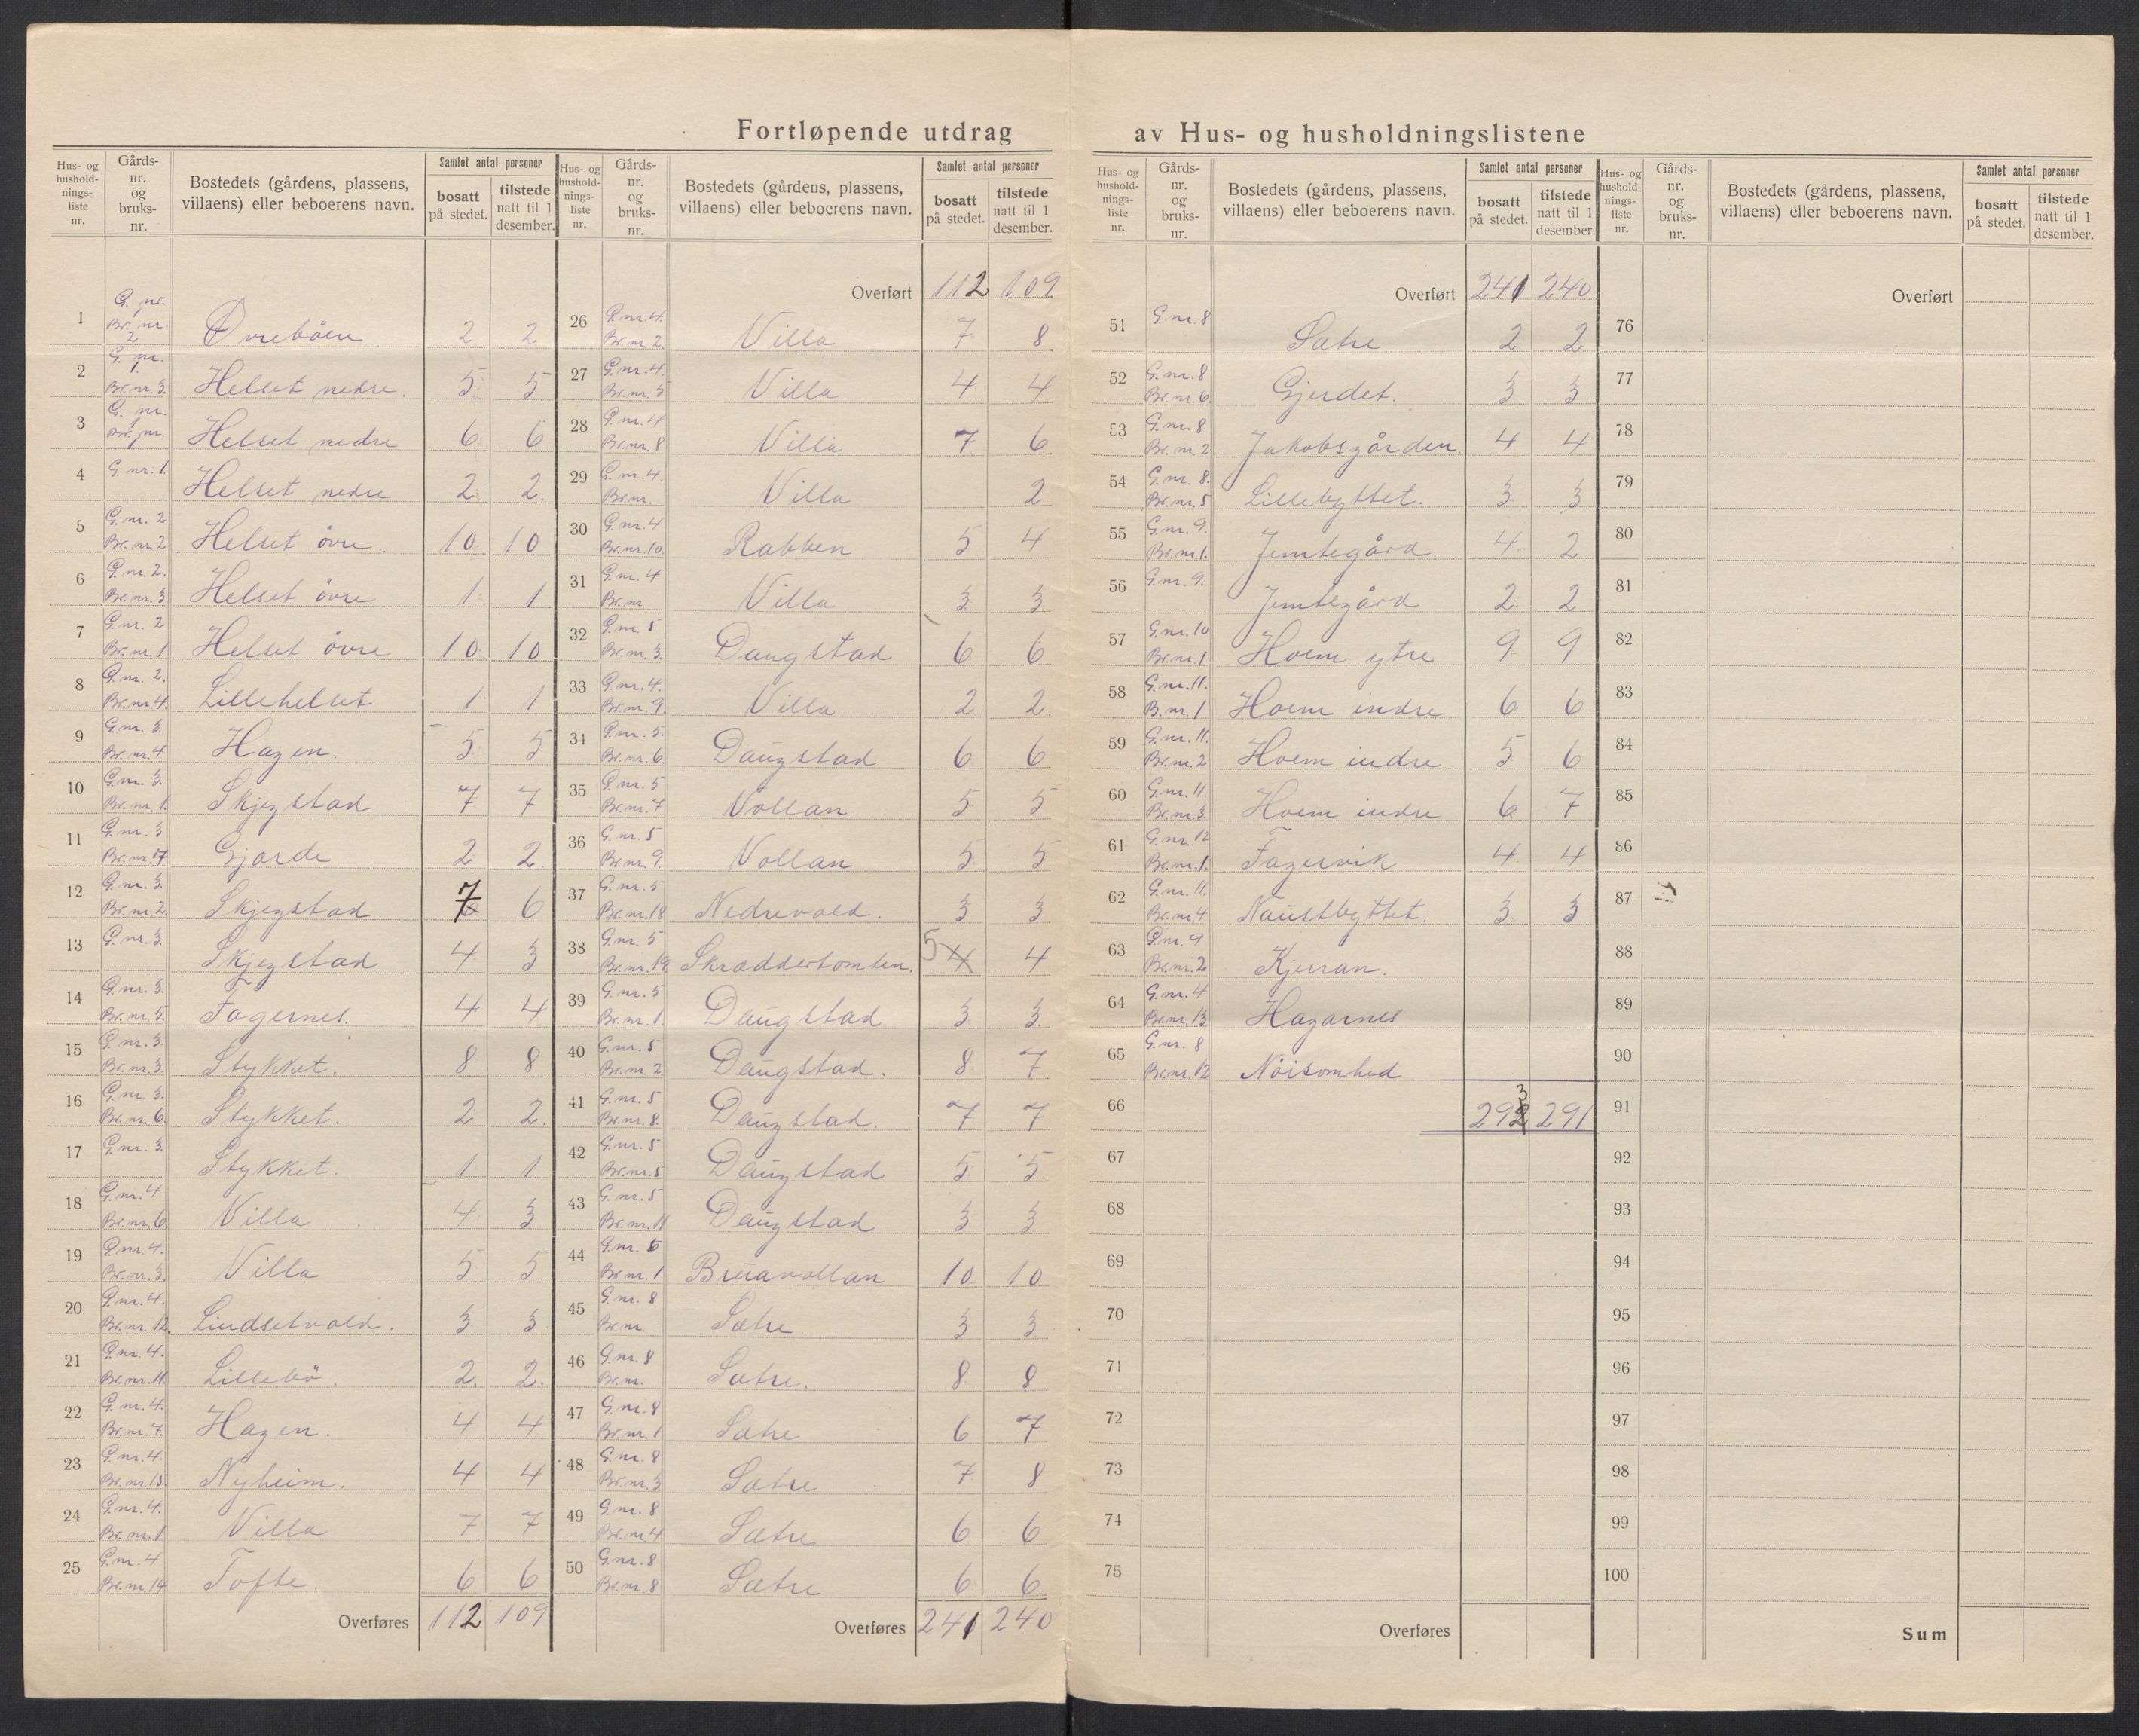 Fortløpende utdrag av Hus- og husholdningslistene
Hus- og hushold-nings-liste nr. Gårds-nr. og bruks-nr. Bostedets (gårdens, plassens, villaens) eller beboerens navn. Samlet antal personer bosatt på stedet. tilstede natt til 1 desember.
1 G. nr. 1 Br. nr. 2 Øvrebøen 2 2
2 G. nr. 1. Br. nr. 3. Helset nedre. 5 5
3 G. nr. 1 Br. nr. 1 Helset nedre 6 6
4 G. nr. 1. Helset nedre 2 2.
5 G. nr. 2 Br. nr. 2 Helset øvre. 10 10
6 G. nr. 2. Br. nr. 3 Helset øvre 1 1
7 G. nr. 2 Br. nr. 1 Helset øvre 10 10
8 G. nr. 2. Br. nr. 4. Lillehelset 1 1
9 G. nr. 3. Br. nr. 4 Hagen. 5 5
10 G. nr. 3. Br. nr. 1. Skjegstad 7 7
11 G. nr. 3 Br. nr. 17 Gjørde 2 2
12 G. nr. 3. Br. nr. 2. Skjegstad 7 6
13 G. nr. 3. Skjegstad 4 3
14 G. nr. 3. Br. nr. 5. Fagernes. 4 4
15 G. nr. 3. Br. nr. 3. Stykket. 8 8
16 G. nr. 3. Br. nr. 6. Stykket. 2 2.
17 G. nr. 3. Stykket. 1 1
18 G. nr. 4 Br. nr. 6. Villa 4 3
19 G. nr. 4. Br. nr. 3. Villa 5 5
20 G. nr. 4. Br. nr. 12. Lindsetvold. 3 3
21 G. nr. 4. Br. nr. 11. Lillebö. 2. 2.
22 G. nr. 4. Br. nr. 7. Hagen. 4 4
23 G. nr. 4. Br. nr. 15. Nyheim. 4 4
24 G. nr. 4. Br. nr. 1 Villa 7 7
25 G. nr. 4 Br. nr. 14 Tofte. 6 6
Overføres 112 109
Hus- og hushold-nings-liste nr. Gårds-nr. og bruks-nr. Bostedets (gårdens, plassens, villaens) eller beboerens navn. Samlet antal personer bosatt på stedet. tilstede natt til 1 desember.
Overført 112 109
26 G. nr. 4. Br. nr. 2. Villa 7 8
27 G. nr. 4. Br. nr. 5 Villa 4 4
28 G. nr. 4 Br. nr. 8 Villa 7 6
29 G. nr. 4. Br. nr. Villa 2
30 G. nr. 4 Br. nr. 10. Rabben 5 4
31 G. nr. 4 Br. nr. Villa 3 3.
32 G. nr. 5 Br. nr. 3. Daugstad 6 6
33 G. nr. 4. Br. nr. 9. Villa 2 2
34 G. nr. 5. Br. nr. 6. Daugstad 6 6
35 G. nr. 5 Br. nr. 7 Vollan 5 5
36 G. nr. 5 Br. nr. 9. Vollan 5 5
37 G. nr. 5 Br. nr. 18 Nedrevold. 3 3
38 G. nr. 5 Br. nr. 19. Skræddertomten. 5 4 4
39 G. nr. 5 Br. nr. 1. Daugstad 3 3.
40 G. nr. 5 Br. nr. 2 Daugstad. 8 7
41 G. nr. 5 Br. nr. 8. Daugstad. 7 7
42 G. nr. 5 Br. nr. 5 Daugstad 5 5
43 G. nr. 5 Br. nr. 11 Daugstad 3 3
44 G. nr. 6 Br. nr. 1 Bruavollan 10 10
45 G. nr. 8 Br. nr. Sætre 3 3
46 G. nr. 8 Br. nr. Sætre. 8 8
47 G. nr. 8 Br. nr. 1 Sætre 6 7
48 G. nr. 8 Br. nr. 3. Sætre 7 8
49 G. nr. 8 Br. nr. 4 Sætre 6 6
50 G. nr. 8 Br. nr. 8 Sætre 6 6
Overføres 241 240
Hus- og hushold-nings-liste nr. Gårds-nr. og bruks-nr. Bostedets (gårdens, plassens, villaens) eller beboerens navn. Samlet antal personer bosatt på stedet. tilstede natt til 1 desember.
Overført 241 240
51 G. nr. 8 Sætre 2 2
52 G. nr. 8 Br. nr. 6. Gjerdet. 3 3
53 G. nr. 8 Br. nr. 2 Jakobsgården 4 4
54 G. nr. 8. Br. nr. 5 Lillebyttet. 3 3
55 G. nr. 9. Br. nr. 1. Jemtegård 4 2
56 G. nr. 9. Jemtegård 2 2
57 G. nr. 10 Br. nr. 1 Hoem ytre 9 9
58 G. nr. 11. B. nr. 1 Hoem indre 6 6
59 G. nr. 11. Br. nr. 2 Hoem indre 5 6
60 G. nr. 11. Br. nr. 3. Hoem indre 6 7
61 G. nr. 12 Br. nr. 1. Fagervik 4 4
62 G. nr. 11. Br. nr. 4 Naustbyttet. 3. 3
63 G. nr. 9 Br. nr. 2 Kjerran.
64 G. nr. 4 Br. nr. 13 Hagarnes
65 G. nr. 8 Br. nr. 12 Nöisomhed
66 292 3 291
67
68
69
70
71
72
73
74
75
Overføres
Hus- og hushold-nings-liste nr. Gårds-nr. og bruks-nr. Bostedets (gårdens, plassens, villaens) eller beboerens navn. Samlet antal personer bosatt på stedet. tilstede natt til 1 desember.
Overført
76
77
78
79
80
81
82
83
84
85
86
87
88
89
90
91
92
93
94
95
96
97
98
99
100
Sum